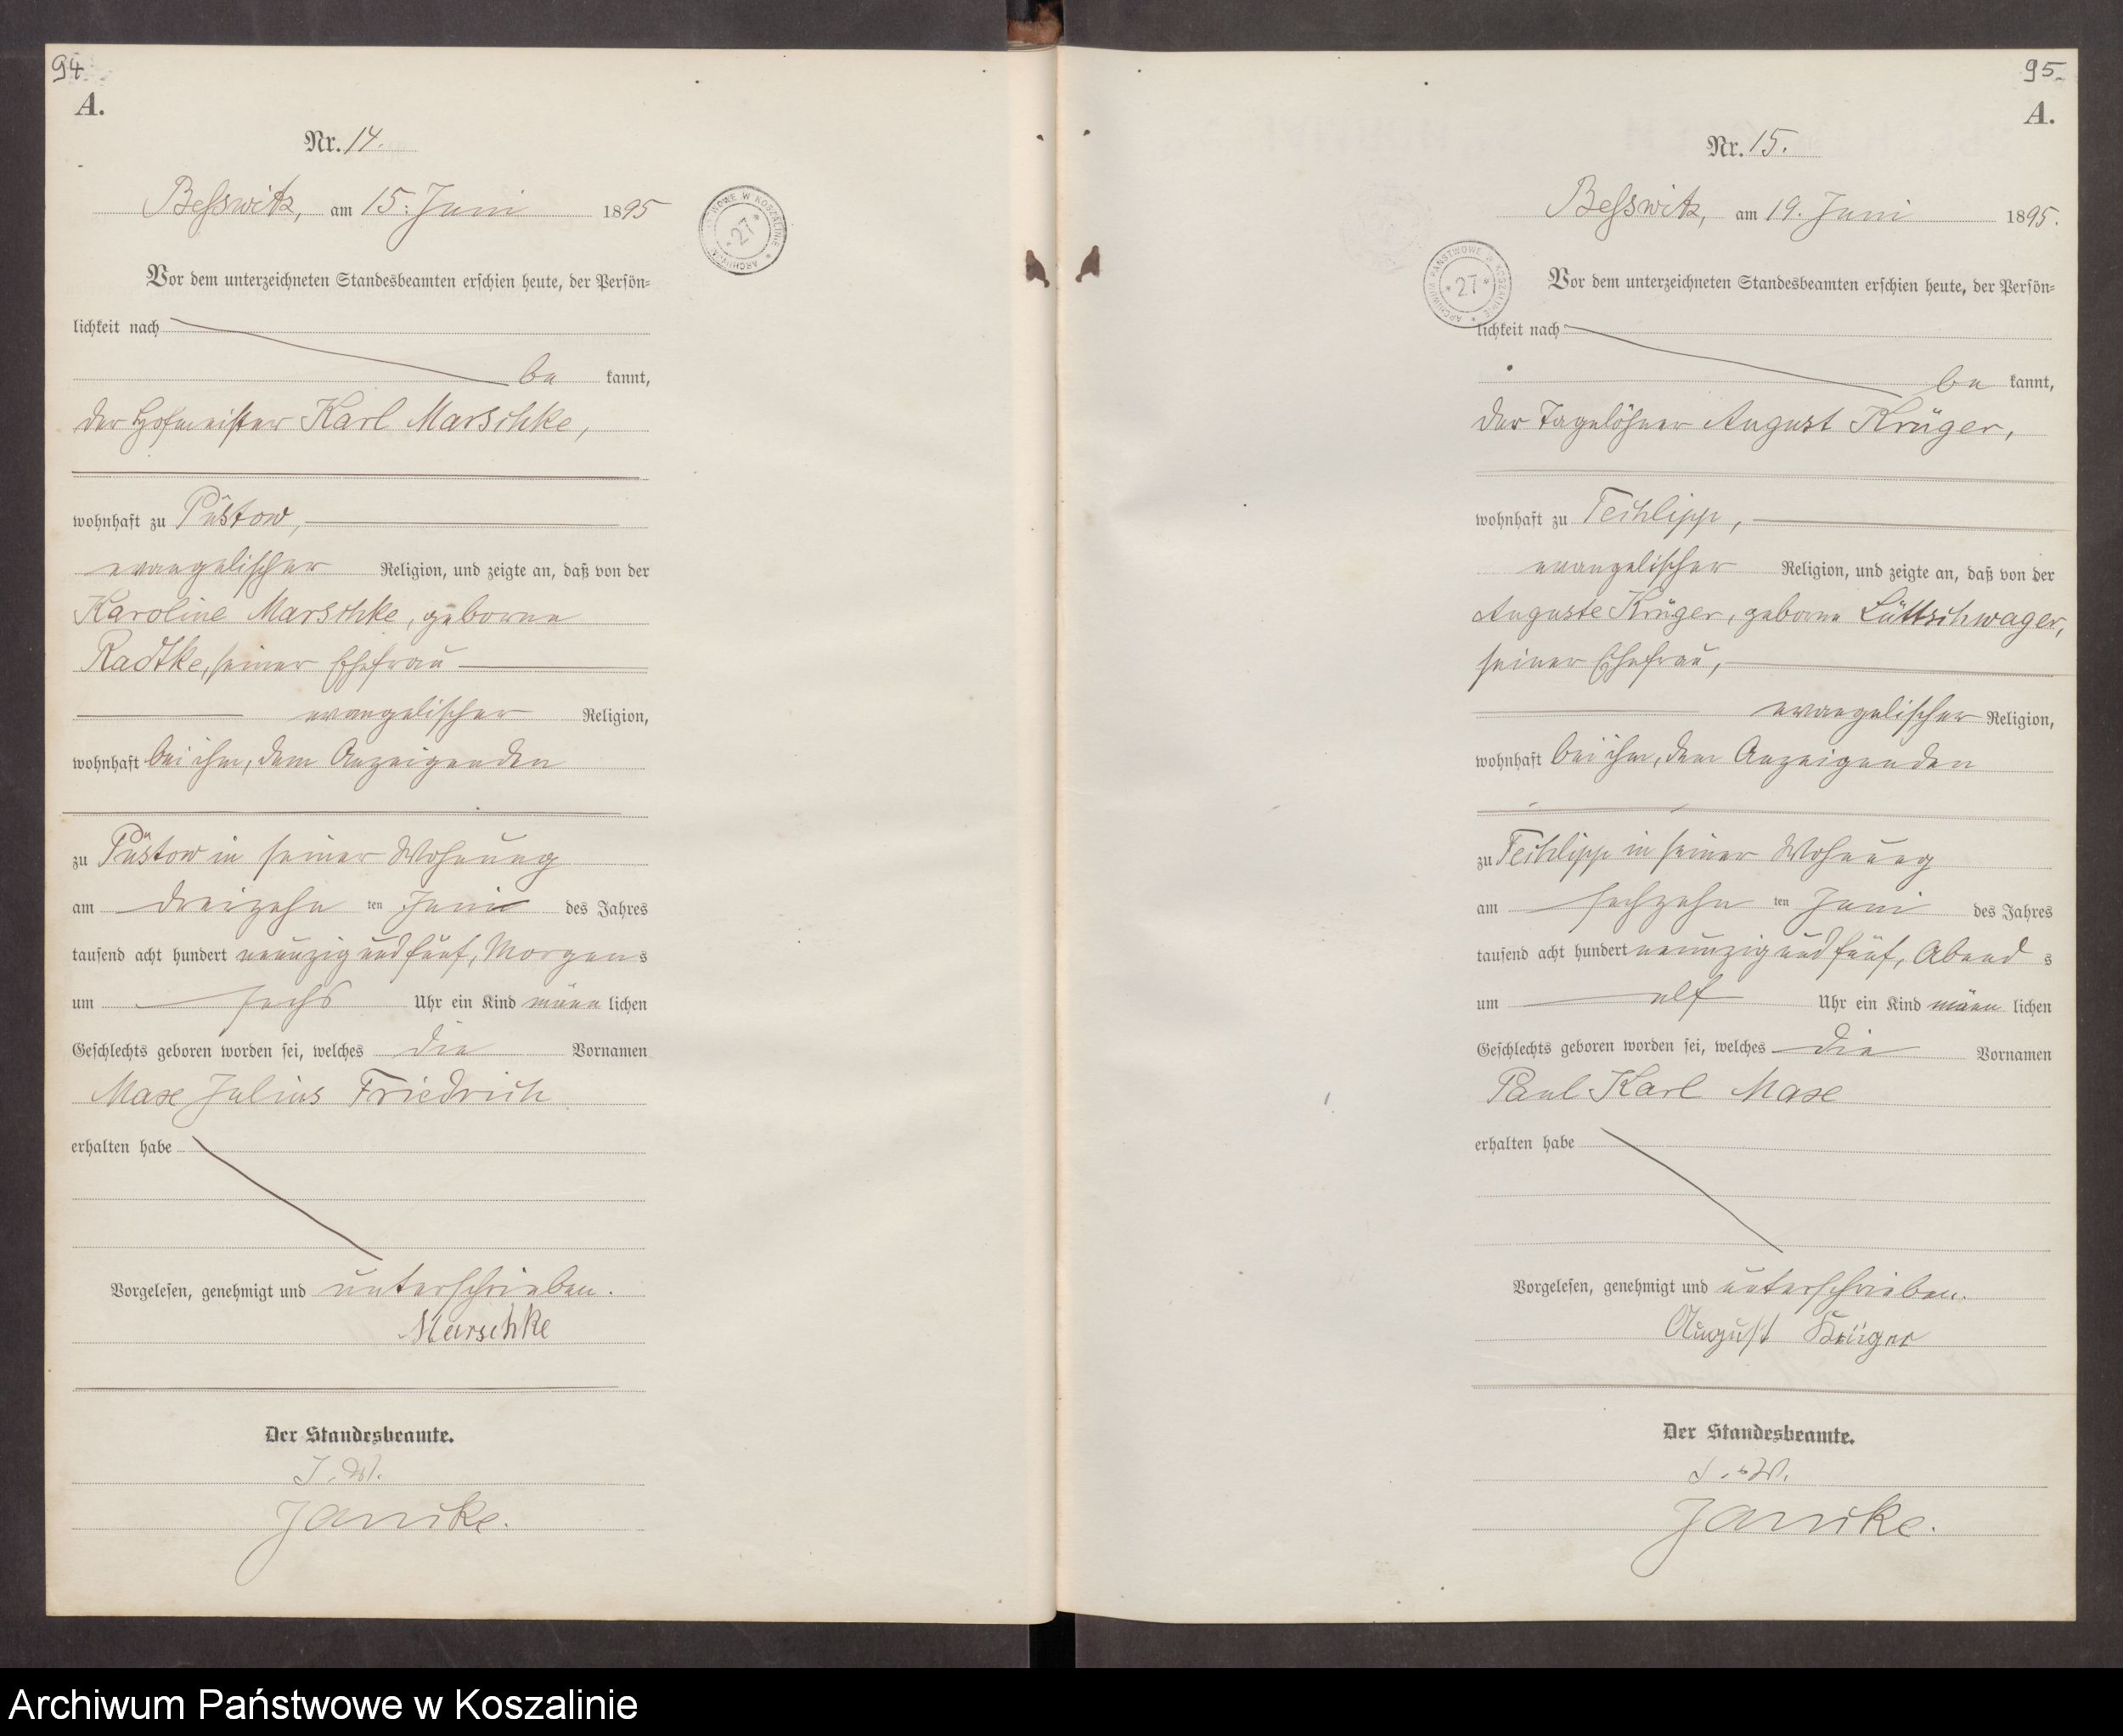 94
A.
Nr. 14.
Beſswitz, am 15. Juni 1895
Vor dem unterzeichneten Standesbeamten erſchien heute, der Perſön-
lichkeit nach
be kannt,
der Hofmeiſter Karl Marschke,
wohnhaft zu Püstow,
evangeliſcher Religion, und zeigte an, daß von der
Karoline Marschke, geborne
Radtke, ſeiner Ehefrau
evangeliſcher Religion,
wohnhaft bei ihm, dem Anzeigenden
zu Püstow in ſeiner Wohnung
am dreizehn ten Juni des Jahres
tauſend acht hundert neunzig und fünf, Morgens
um ſechs Uhr ein Kind männ lichen
Geſchlechts geboren worden ſei, welches die Vornamen
Max Julius Friedrich
erhalten habe
Vorgeleſen, genehmigt und unterſchrieben.
Marschke
Der Standesbeamte.
J. V.
Janike.
ARCHIWUM PAŃSTWOWE W KOSZALINIE
* 27 *
95.
A.
Nr. 15.
Beſswitz, am 19. Juni 1895.
Vor dem unterzeichneten Standesbeamten erſchien heute, der Perſön-
lichkeit nach
be kannt,
der Tagelöhner August Krüger,
wohnhaft zu Techlipp,
evangeliſcher Religion, und zeigte an, daß von der
Auguste Krüger, geborne Lüttschwager,
ſeiner Ehefrau,
evangeliſcher Religion,
wohnhaft bei ihm, dem Anzeigenden
zu Techlipp in ſeiner Wohnung
am ſechzehn ten Juni des Jahres
tauſend acht hundert neunzig und fünf, Abend s
um elf Uhr ein Kind männ lichen
Geſchlechts geboren worden ſei, welches die Vornamen
Paul Karl Max
erhalten habe
Vorgeleſen, genehmigt und unterſchrieben.
Auguſt Krüger
Der Standesbeamte.
J. V.
Janike.
ARCHIWUM PAŃSTWOWE W KOSZALINIE
* 27 *
Archiwum Państwowe w Koszalinie